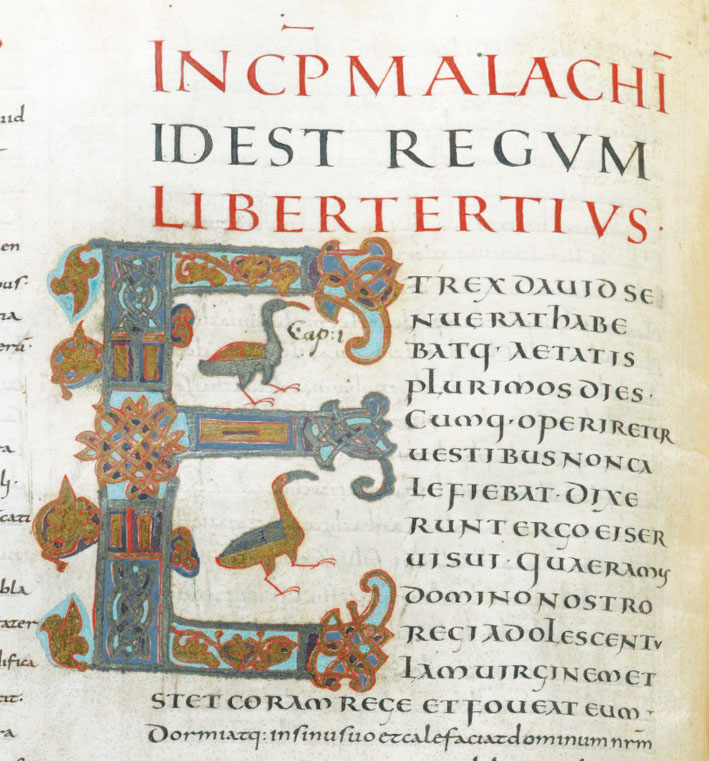 INCP MALACHI
IDEST REGVM
LIBER TERTIVS·
Cap: 1
ET REX DAUID SE
NUERAT HABE
BATQ· AETATIS
PLURIMOS DIES·
CUMQ· OPERIRETUR
UESTIBUS NON CA
LEFIEBAT· DIXE
RUNT ERGO EI SER
UI SUI· QUAERAMUS
DOMINO NOSTRO
REGI ADOLESCENTU
LAM UIRGINEM ET
STET CORAM REGE ET FOUEAT EUM·
Dormiatq: in sinu suo et calefaciat dominum nrm
uid
en
pus·
ria
erū·
ra
cati
bla
ater
ifica
cit·
ra